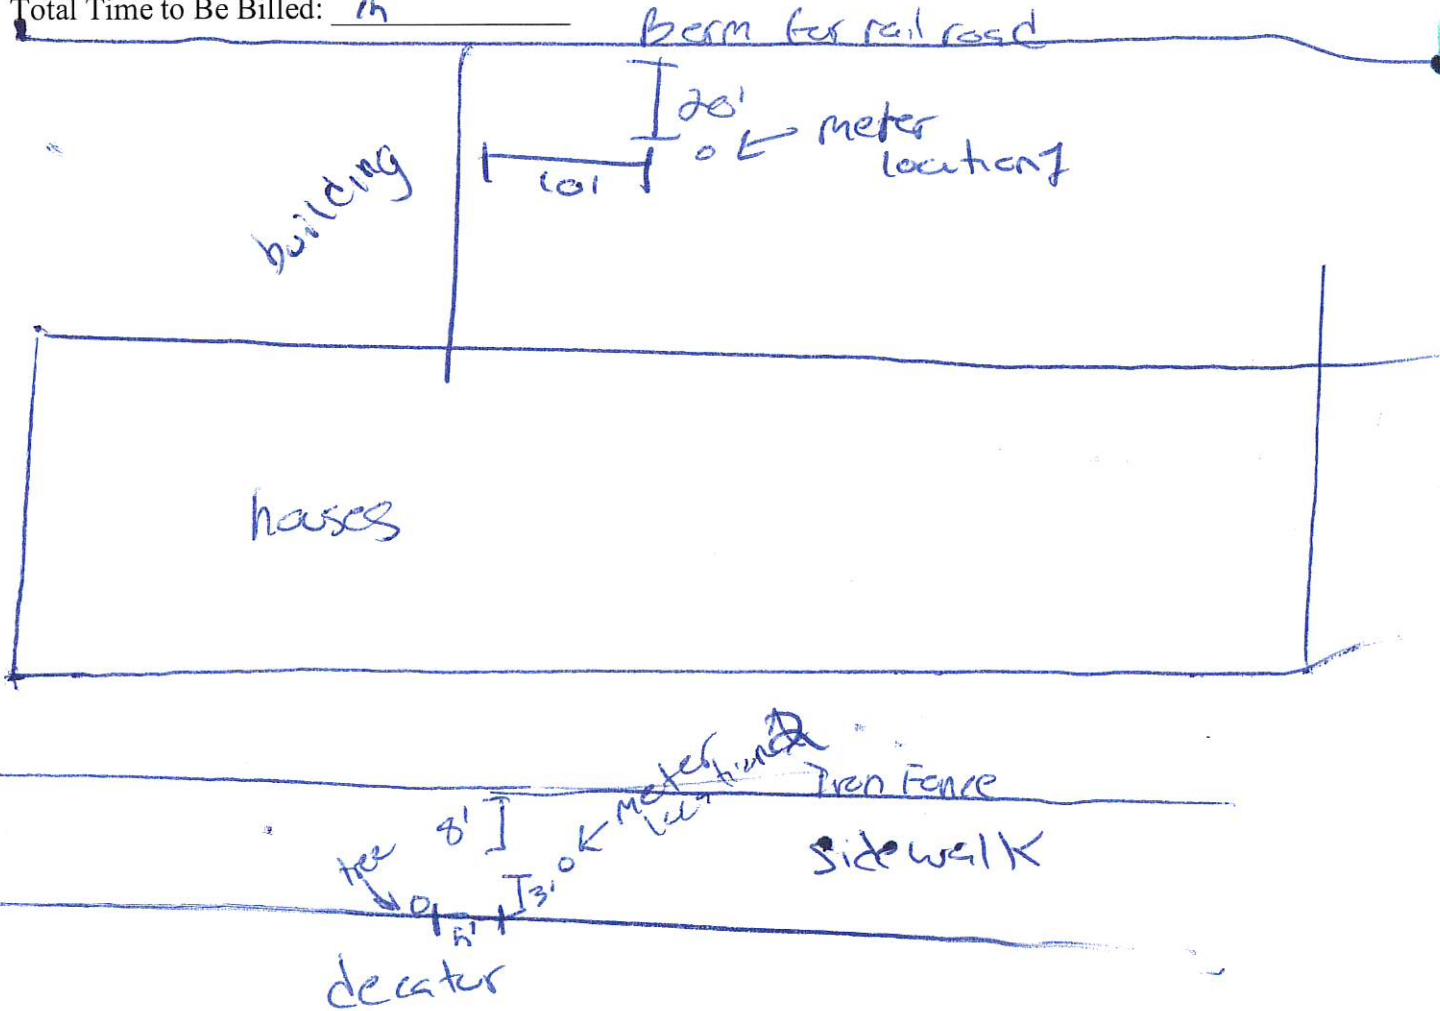 Total Time to Be Billed: 1h
Berm for railroad
20'
meter
location 1
10'
building
houses
meter
location 2
Iron Fence
8'
sidewalk
tree
3'
5'
decatur